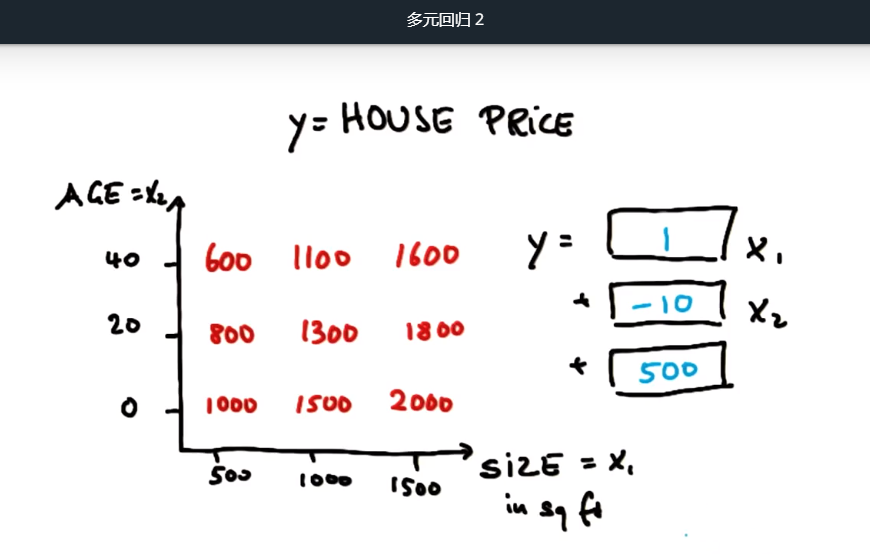 多元回归 2
y = HOUSE PRiCE
AGE = x₂
40 600 1100 1600
20 800 1300 1800
0 1000 1500 2000
500 1000 1500
SiZE = x₁
in sq ft
y = 1 x₁
+ -10 x₂
+ 500